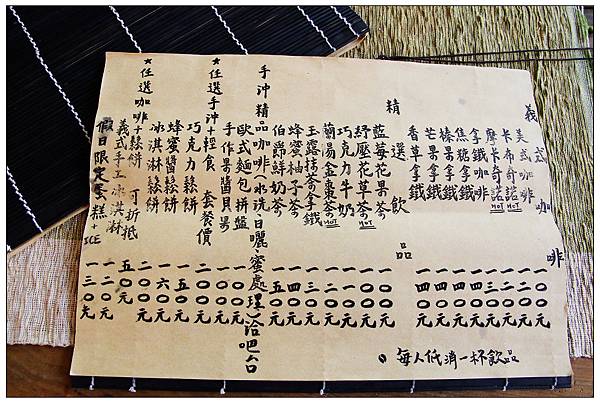 義式咖啡
美式咖啡 一００元
卡布奇諾 HOT 一二０元
摩卡奇諾 HOT 一二０元
拿鐵咖啡 一三０元
焦糖拿鐵 一四０元
榛果拿鐵 一四０元
芒果拿鐵 一四０元
香草拿鐵 一四０元
精選飲品
藍莓花果茶 HOT 一００元
紓壓花草茶 HOT 一００元
巧克力牛奶
蘭陽金棗茶 HOT
玉露抹茶拿鐵 一三０元
蜂蜜柚子茶 一四０元
伯爵鮮奶茶 一００元
手沖精品咖啡(水洗、日曬、蜜處理)洽吧台
歐式麵包拼盤 一二０元
手作果醬貝果 一００元
★任選手沖+輕食 套餐價 二００元
巧克力鬆餅
蜂蜜醬鬆餅 一五０元
冰淇淋鬆餅 一六０元
★任選咖啡+鬆餅 二００元
可折抵五０元
義式手工冰淇淋 一二０元
假日限定蛋糕+ICE 一三０元
。每人低消一杯飲品